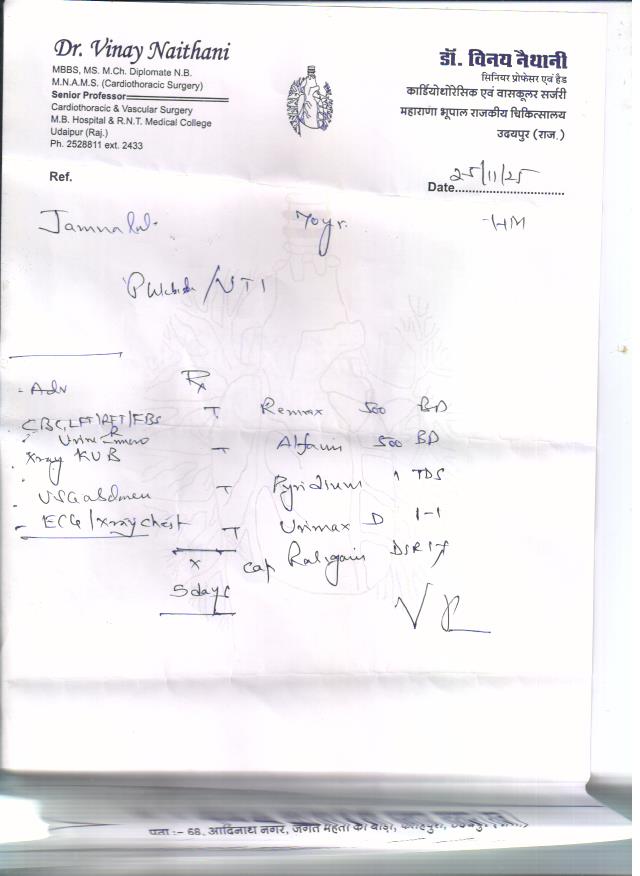 Dr. Vinay Naithani
MBBS, MS. M.Ch. Diplomate N.B.
M.N.A.M.S. (Cardiothoracic Surgery)
Senior Professor
Cardiothoracic & Vascular Surgery
M.B. Hospital & R.N.T. Medical College
Udaipur (Raj.)
Ph. 2528811 ext. 2433
डॉ. विनय नैथानी
सिनियर प्रोफेसर एवं हैड
कार्डियोथोरेसिक एवं वासकूलर सर्जरी
महाराणा भूपाल राजकीय चिकित्सालय
उदयपुर (राज.)
Ref.
Date 25/11/25
70yr.
/UTI
- Adv
Rx
CBC, LFT/RFT/FBS T 500 BD
Urine R
T 500 BD
Xray KUB
T Pyridium 1 TDS
USG abdomen
- ECG/Xray chest T Urimax D 1-1
Cap DSR
x
5 days
पता :- 68, आदिनाथ नगर, जगत मेहता का बाड़ा,